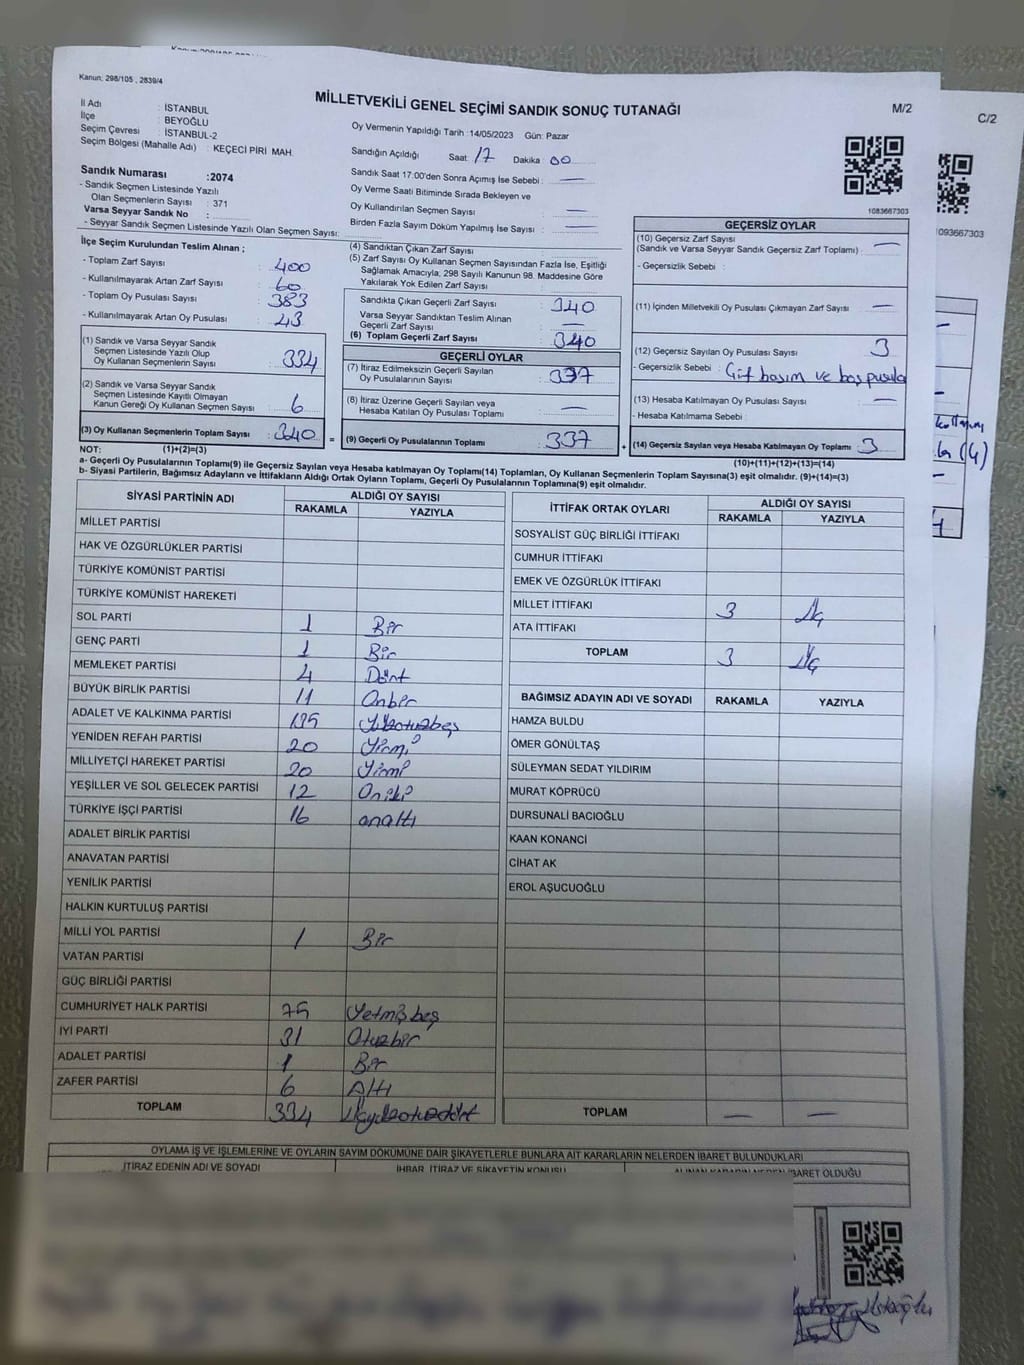 Kanun: 298/105 , 2839/4
MİLLETVEKİLİ GENEL SEÇİMİ SANDIK SONUÇ TUTANAĞI
M/2
C/2
İl Adı : İSTANBUL
İlçe : BEYOĞLU
Seçim Çevresi : İSTANBUL-2
Seçim Bölgesi (Mahalle Adı) : KEÇECİ PİRİ MAH.
Oy Vermenin Yapıldığı Tarih :14/05/2023 Gün: Pazar
Sandığın Açıldığı Saat: 17 Dakika 00
Sandık Saat 17:00'den Sonra Açımış İse Sebebi : —
Oy Verme Saati Bitiminde Sırada Bekleyen ve
Oy Kullandırılan Seçmen Sayısı : —
Birden Fazla Sayım Döküm Yapılmış İse Sayısı : —
1083667303
1093667303
Sandık Numarası :2074
- Sandık Seçmen Listesinde Yazılı
Olan Seçmenlerin Sayısı : 371
Varsa Seyyar Sandık No :
- Seyyar Sandık Seçmen Listesinde Yazılı Olan Seçmen Sayısı:
İlçe Seçim Kurulundan Teslim Alınan ;
- Toplam Zarf Sayısı : 400
- Kullanılmayarak Artan Zarf Sayısı : 60
- Toplam Oy Pusulası Sayısı : 383
- Kullanılmayarak Artan Oy Pusulası : 43
(1) Sandık ve Varsa Seyyar Sandık
Seçmen Listesinde Yazılı Olup
Oy Kullanan Seçmenlerin Sayısı : 334
(2) Sandık ve Varsa Seyyar Sandık
Seçmen Listesinde Kayıtlı Olmayan
Kanun Gereği Oy Kullanan Seçmen Sayısı : 6
(3) Oy Kullanan Seçmenlerin Toplam Sayısı : 340 =
(1)+(2)=(3)
(4) Sandıktan Çıkan Zarf Sayısı :
(5) Zarf Sayısı Oy Kullanan Seçmen Sayısından Fazla İse, Eşitliği
Sağlamak Amacıyla, 298 Sayılı Kanunun 98. Maddesine Göre
Yakılarak Yok Edilen Zarf Sayısı :
Sandıkta Çıkan Geçerli Zarf Sayısı : 340
Varsa Seyyar Sandıktan Teslim Alınan
Geçerli Zarf Sayısı : —
(6) Toplam Geçerli Zarf Sayısı : 340
GEÇERLİ OYLAR
(7) İtiraz Edilmeksizin Geçerli Sayılan
Oy Pusulalarının Sayısı : 337
(8) İtiraz Üzerine Geçerli Sayılan veya
Hesaba Katılan Oy Pusulası Toplamı : —
(9) Geçerli Oy Pusulalarının Toplamı : 337 +
GEÇERSİZ OYLAR
(10) Geçersiz Zarf Sayısı : —
(Sandık ve Varsa Seyyar Sandık Geçersiz Zarf Toplamı)
- Geçersizlik Sebebi :
(11) İçinden Milletvekili Oy Pusulası Çıkmayan Zarf Sayısı : —
(12) Geçersiz Sayılan Oy Pusulası Sayısı : 3
- Geçersizlik Sebebi : Çift basım ve boş pusula
(13) Hesaba Katılmayan Oy Pusulası Sayısı : —
- Hesaba Katılmama Sebebi :
(14) Geçersiz Sayılan veya Hesaba Katılmayan Oy Toplamı : 3
(10)+(11)+(12)+(13)=(14)
NOT:
a- Geçerli Oy Pusulalarının Toplamı(9) ile Geçersiz Sayılan veya Hesaba katılmayan Oy Toplamı(14) Toplamları, Oy Kullanan Seçmenlerin Toplam Sayısına(3) eşit olmalıdır. (9)+(14)=(3)
b- Siyasi Partilerin, Bağımsız Adayların ve İttifakların Aldığı Ortak Oyların Toplamı, Geçerli Oy Pusulalarının Toplamına(9) eşit olmalıdır.
SİYASİ PARTİNİN ADI ALDIĞI OY SAYISI
RAKAMLA YAZIYLA
MİLLET PARTİSİ
HAK VE ÖZGÜRLÜKLER PARTİSİ
TÜRKİYE KOMÜNİST PARTİSİ
TÜRKİYE KOMÜNİST HAREKETİ
SOL PARTİ 1 Bir
GENÇ PARTİ 1 Bir
MEMLEKET PARTİSİ 4 Dört
BÜYÜK BİRLİK PARTİSİ 11 Onbir
ADALET VE KALKINMA PARTİSİ 135 Yüzotuzbeş
YENİDEN REFAH PARTİSİ 20 Yirmi
MİLLİYETÇİ HAREKET PARTİSİ 20 Yirmi
YEŞİLLER VE SOL GELECEK PARTİSİ 12 Oniki
TÜRKİYE İŞÇİ PARTİSİ 16 onaltı
ADALET BİRLİK PARTİSİ
ANAVATAN PARTİSİ
YENİLİK PARTİSİ
HALKIN KURTULUŞ PARTİSİ
MİLLİ YOL PARTİSİ 1 Bir
VATAN PARTİSİ
GÜÇ BİRLİĞİ PARTİSİ
CUMHURİYET HALK PARTİSİ 75 Yetmişbeş
İYİ PARTİ 31 Otuzbir
ADALET PARTİSİ 1 Bir
ZAFER PARTİSİ 6 Altı
TOPLAM 334 Üçyüzotuzdört
İTTİFAK ORTAK OYLARI ALDIĞI OY SAYISI
RAKAMLA YAZIYLA
SOSYALİST GÜÇ BİRLİĞİ İTTİFAKI
CUMHUR İTTİFAKI
EMEK VE ÖZGÜRLÜK İTTİFAKI
MİLLET İTTİFAKI 3 Üç
ATA İTTİFAKI
TOPLAM 3 Üç
BAĞIMSIZ ADAYIN ADI VE SOYADI RAKAMLA YAZIYLA
HAMZA BULDU
ÖMER GÖNÜLTAŞ
SÜLEYMAN SEDAT YILDIRIM
MURAT KÖPRÜCÜ
DURSUNALİ BACIOĞLU
KAAN KONANCİ
CİHAT AK
EROL AŞUCUOĞLU
TOPLAM — —
OYLAMA İŞ VE İŞLEMLERİNE VE OYLARIN SAYIM DÖKÜMÜNE DAİR ŞİKAYETLERLE BUNLARA AİT KARARLARIN NELERDEN İBARET BULUNDUKLARI
İTİRAZ EDENİN ADI VE SOYADI İHBAR, İTİRAZ VE ŞİKAYETİN KONUSU ALINAN KARARIN NEDEN İBARET OLDUĞU